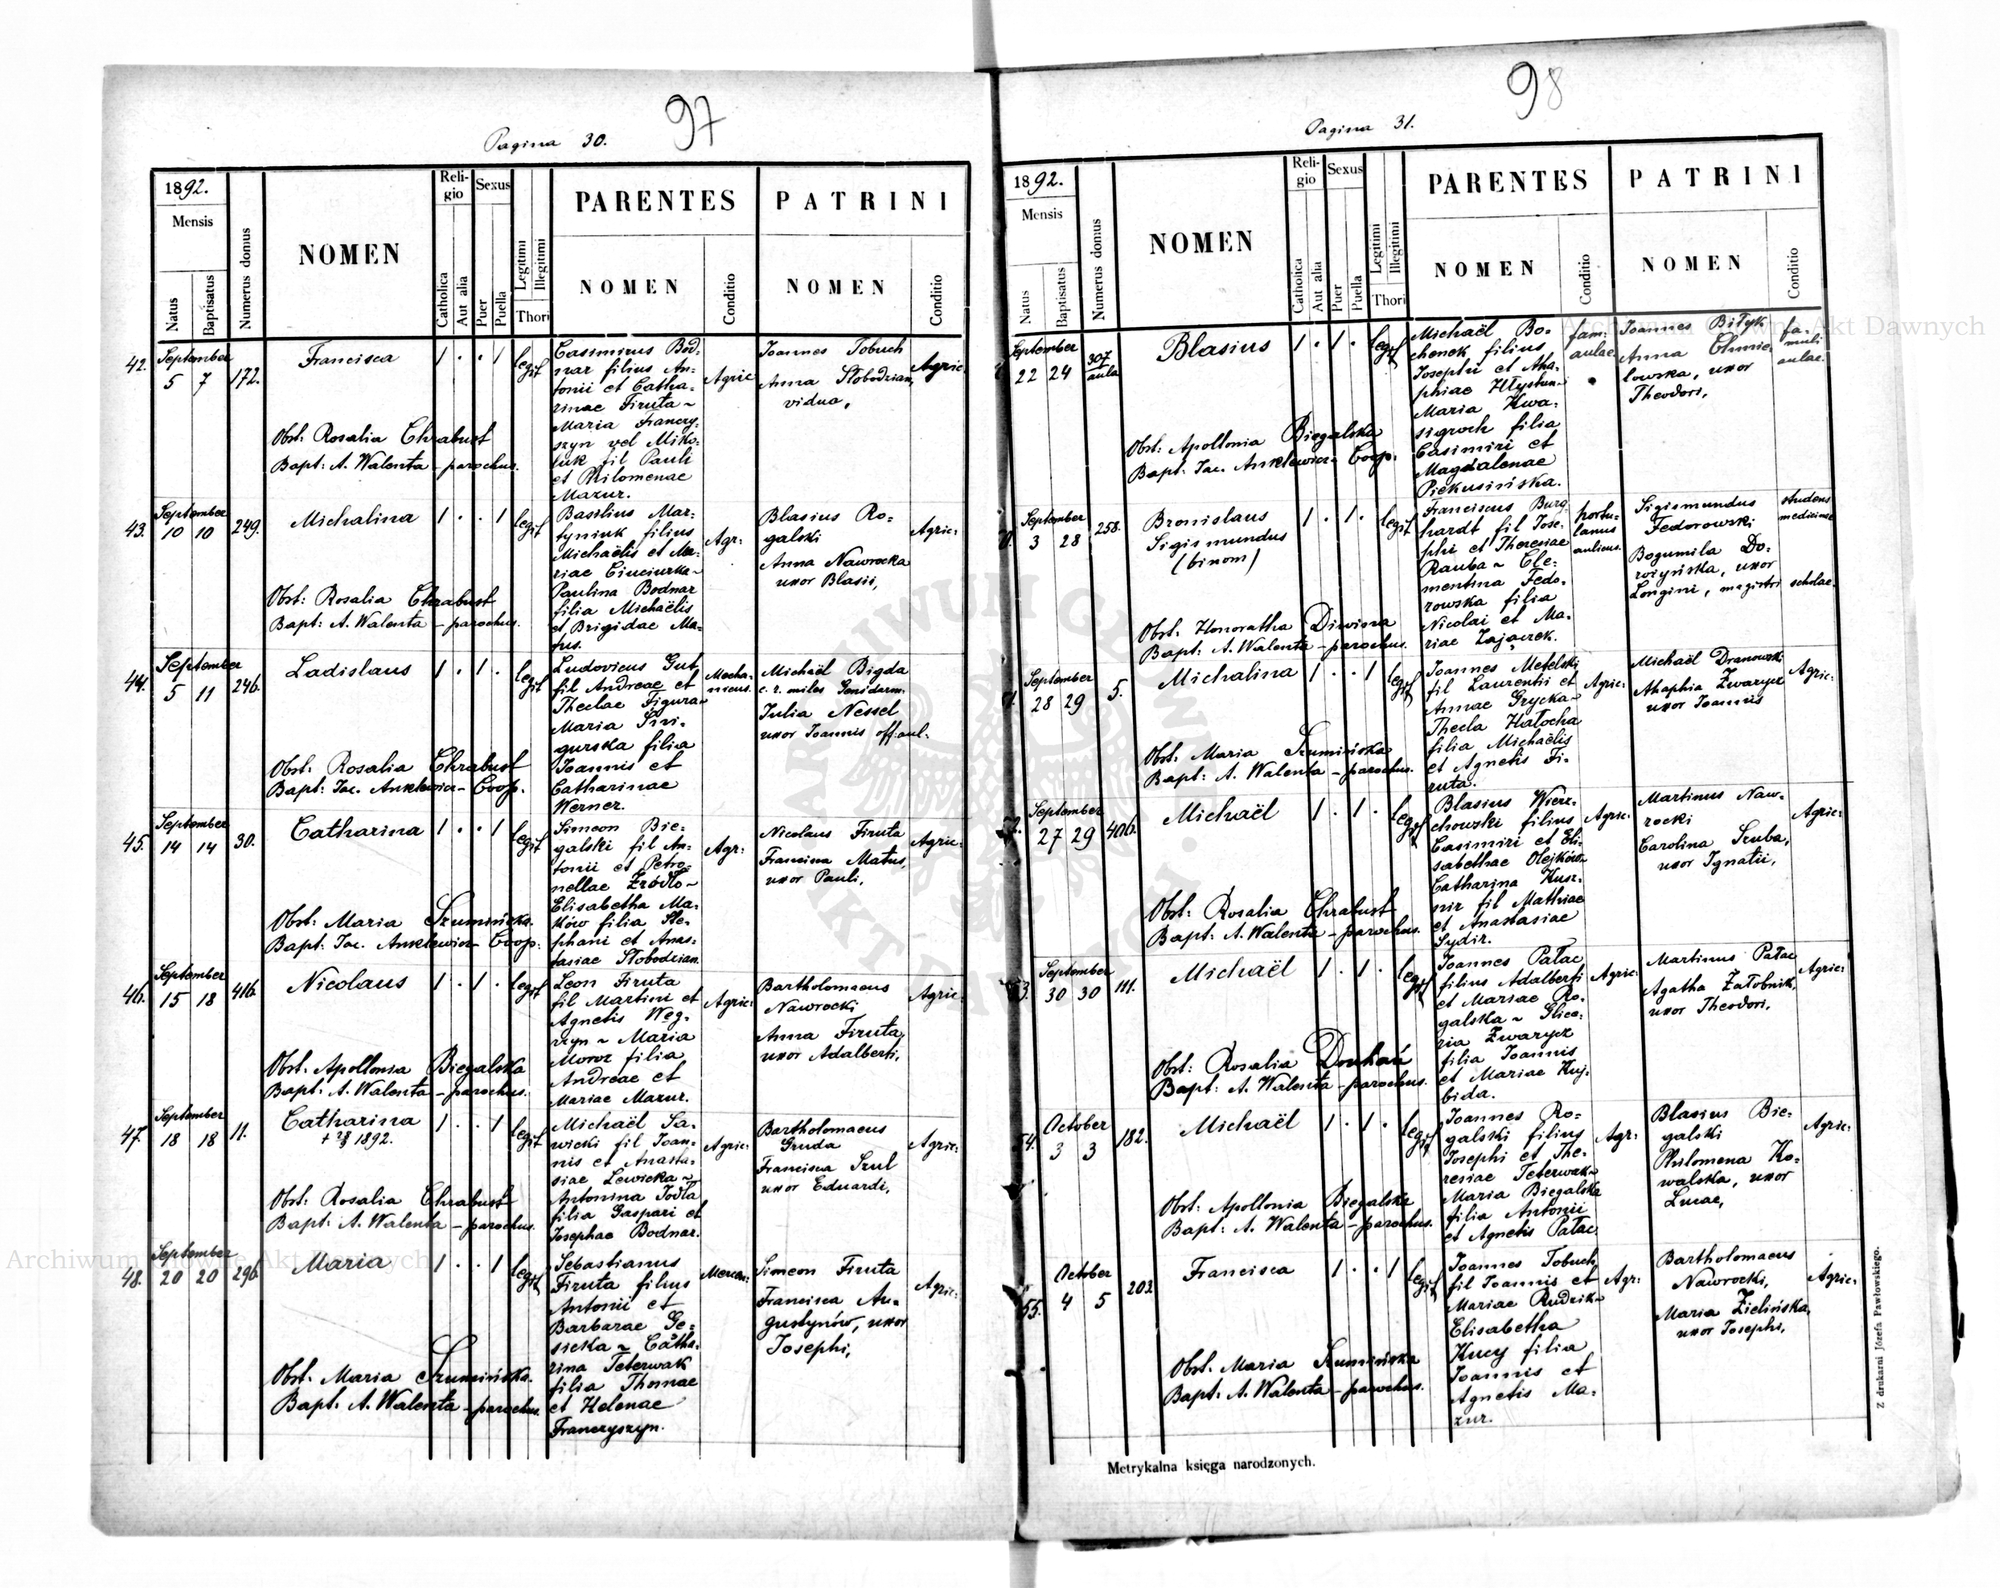 97
Pagina 30.
1892.
Mensis
Natus
Baptisatus
Numerus domus
NOMEN
Religio
Catholica
Aut alia
Sexus
Puer
Puella
Legitimi
Illegitimi
Thori
PARENTES
NOMEN
Conditio
PATRINI
NOMEN
Conditio
42. September
5 7 172.
Francisca 1 . . 1 legit
Casimirus Bod-
nar filius An-
tonii et Catha-
rinae Firuta ~
Maria Franczy-
szyn vel Miko-
luk fil Pauli
et Philomenae
Mazur.
Agric
Joannes Tobuch
Anna Słobodzian,
vidua,
Agric:
Obst: Rosalia Chrabust
Bapt: A. Walenta - parochus.
43. September
10 10 249.
Michalina 1 . . 1 legit
Basilius Mar-
tyniuk filius
Michaëlis et Ma-
riae Ciuciurka ~
Paulina Bodnar
filia Michaëlis
et Brigidae Ma-
tus.
Agr:
Blasius Ro-
galski
Anna Nawrocka
uxor Blasii,
Agric:
Obst: Rosalia Chrabust
Bapt: A. Walenta - parochus.
44. September
5 11 246.
Ladislaus 1 . 1 . legit
Ludovicus Gut
fil Andreae et
Theclae Figura ~
Maria
gurska filia
Joannis et
Catharinae
Werner.
Mecha-
nicus.
Michaël Bigda
c. r. miles Gendarm.
Julia Nessel
uxor Joannis off. aul.
Obst: Rosalia Chrabust
Bapt: Jac. Anklewicz - Coop.
45. September
14 14 30.
Catharina 1 . . 1 legit
Simeon Bie-
galski fil An-
tonii et Petro-
nellae Źródło ~
Elisabetha Ma-
ków filia Ste-
phani et Anas-
tasiae Słobodzian.
Agr:
Nicolaus Firuta
Francisca Matus,
uxor Pauli,
Agric:
Obst: Maria Szumińska.
Bapt: Jac. Anklewicz - Coop:
46. September
15 18 416.
Nicolaus 1 . 1 . legit
Leon Firuta
fil Martini et
Agnetis Węg-
rzyn ~ Maria
Moroz filia
Andreae et
Mariae Mazur.
Agric:
Bartholomaeus
Nawrocki
Anna Firuta
uxor Adalberti,
Agric:
Obst: Apollonia Biegalska
Bapt: A. Walenta - parochus.
47. September
18 18 11.
Catharina 1 . . 1 legit
1892.
Michaël Sa-
wicki fil Joan-
nis et Anasta-
siae Lewicka ~
Antonina Jodła
filia Gaspari et
Josephae Bodnar.
Agric:
Bartholomaeus
Gruda
Francisca Szul
uxor Eduardi,
Agric:
Obst: Rosalia Chrabust
Bapt: A. Walenta - parochus.
48. September
20 20 296.
Maria 1 . . 1 legit
Sebastianus
Firuta filius
Antonii et
Barbarae Gę-
sicka ~ Catha-
rina Teterwak
filia Thomae
et Helenae
Franczyszyn.
Mercen:
Simeon Firuta
Francisca Au-
gustynów, uxor
Josephi,
Agric:
Obst: Maria Szumińska.
Bapt: A. Walenta - parochus.
98
Pagina 31.
1892.
Mensis
Natus
Baptisatus
Numerus domus
NOMEN
Religio
Catholica
Aut alia
Sexus
Puer
Puella
Legitimi
Illegitimi
Thori
PARENTES
NOMEN
Conditio
PATRINI
NOMEN
Conditio
September
22 24 307 aula
Blasius 1 . 1 . legit
Michaël Bo-
chenek filius
Josephi et Aha-
phiae
Maria Kwa-
sigroch filia
Casimiri et
Magdalenae
Piekusińska.
fam:
aulae.
Joannes Biłyk
Anna Chmie-
lowska, uxor
Theodori,
fa-
muli
aulae.
Obst: Apollonia Biegalska
Bapt: Jac. Anklewicz - Coop.
September
3 28 258.
Bronislaus
Sigismundus
(binom)
1 . 1 . legit
Franciscus Burg
hardt fil Jose-
phi et Theresiae
Rauba ~ Cle-
mentina Fedo-
rowska filia
Nicolai et Ma-
riae Zajączek.
hortu-
lanus
aulicus.
Sigismundus
Fedorowski
Bogumila Do-
uxor
Longini, magistri
studens
medicinae
scholae.
Obst: Honoratha Diwisna
Bapt: A. Walenta - parochus.
September
28 29 5.
Michalina 1 . . 1 legit
Joannes Metelski
fil Laurentii et
Annae Grycka ~
Thecla Hałocha
filia Michaëlis
et Agnetis Fi-
ruta.
Agric:
Michaël Dranowski
Ahaphia Zwarycz
uxor Joannis
Agric:
Obst: Maria Szumińska
Bapt: A. Walenta - parochus.
52. September
27 29 406.
Michaël 1 . 1 . legit
Blasius Wierz-
chowski filius
Casimiri et Eli-
sabethae Olejków ~
Catharina Kusz-
nir fil Mathiae
et Anastasiae
Sydir.
Agric:
Martinus Naw-
rocki
Carolina Szuba,
uxor Ignatii,
Agric:
Obst: Rosalia Chrabust
Bapt: A. Walenta - parochus.
53. September
30 30 111.
Michaël 1 . 1 . legit
Joannes Pałac
filius Adalberti
et Mariae Ro-
galska ~ Glice-
ria Zwarycz
filia Joannis
et Mariae Kuj-
bida.
Agric:
Martinus Pałac
Agatha Załobnik,
uxor Theodori,
Agric:
Obst: Rosalia Douhań
Bapt: A. Walenta - parochus.
54. October
3 3 182.
Michaël 1 . 1 . legit
Joannes Ro-
galski filius
Josephi et The-
resiae Teterwak ~
Maria Biegalska
filia Antonii
et Agnetis Pałac.
Agr:
Blasius Bie-
galski
Philomena Ko-
walska, uxor
Lucae,
Agric:
Obst: Apollonia Biegalska
Bapt: A. Walenta - parochus.
55. October
4 5 203.
Francisca 1 . . 1 legit
Joannes Tobuch
fil Joannis et
Mariae Rudzik ~
Elisabetha
Kucy filia
Joannis et
Agnetis Ma-
zur.
Agr:
Bartholomaeus
Nawrocki,
Maria Zielińska,
uxor Josephi,
Agric:
Obst: Maria Szumińska
Bapt: A. Walenta - parochus.
Metrykalna księga narodzonych.
Z drukarni Józefa Pawłowskiego.
Archiwum Główne Akt Dawnych
Archiwum Główne Akt Dawnych
ARCHIWUM GŁÓWNE AKT DAWNYCH